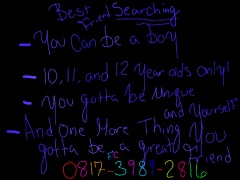 Best Friend Searching
- You Can be a boy
- 10, 11, and 12 Year olds only!
- You gotta be unique and Yourself
- And One More Thing You gotta be a great friend
0817-3989-2816